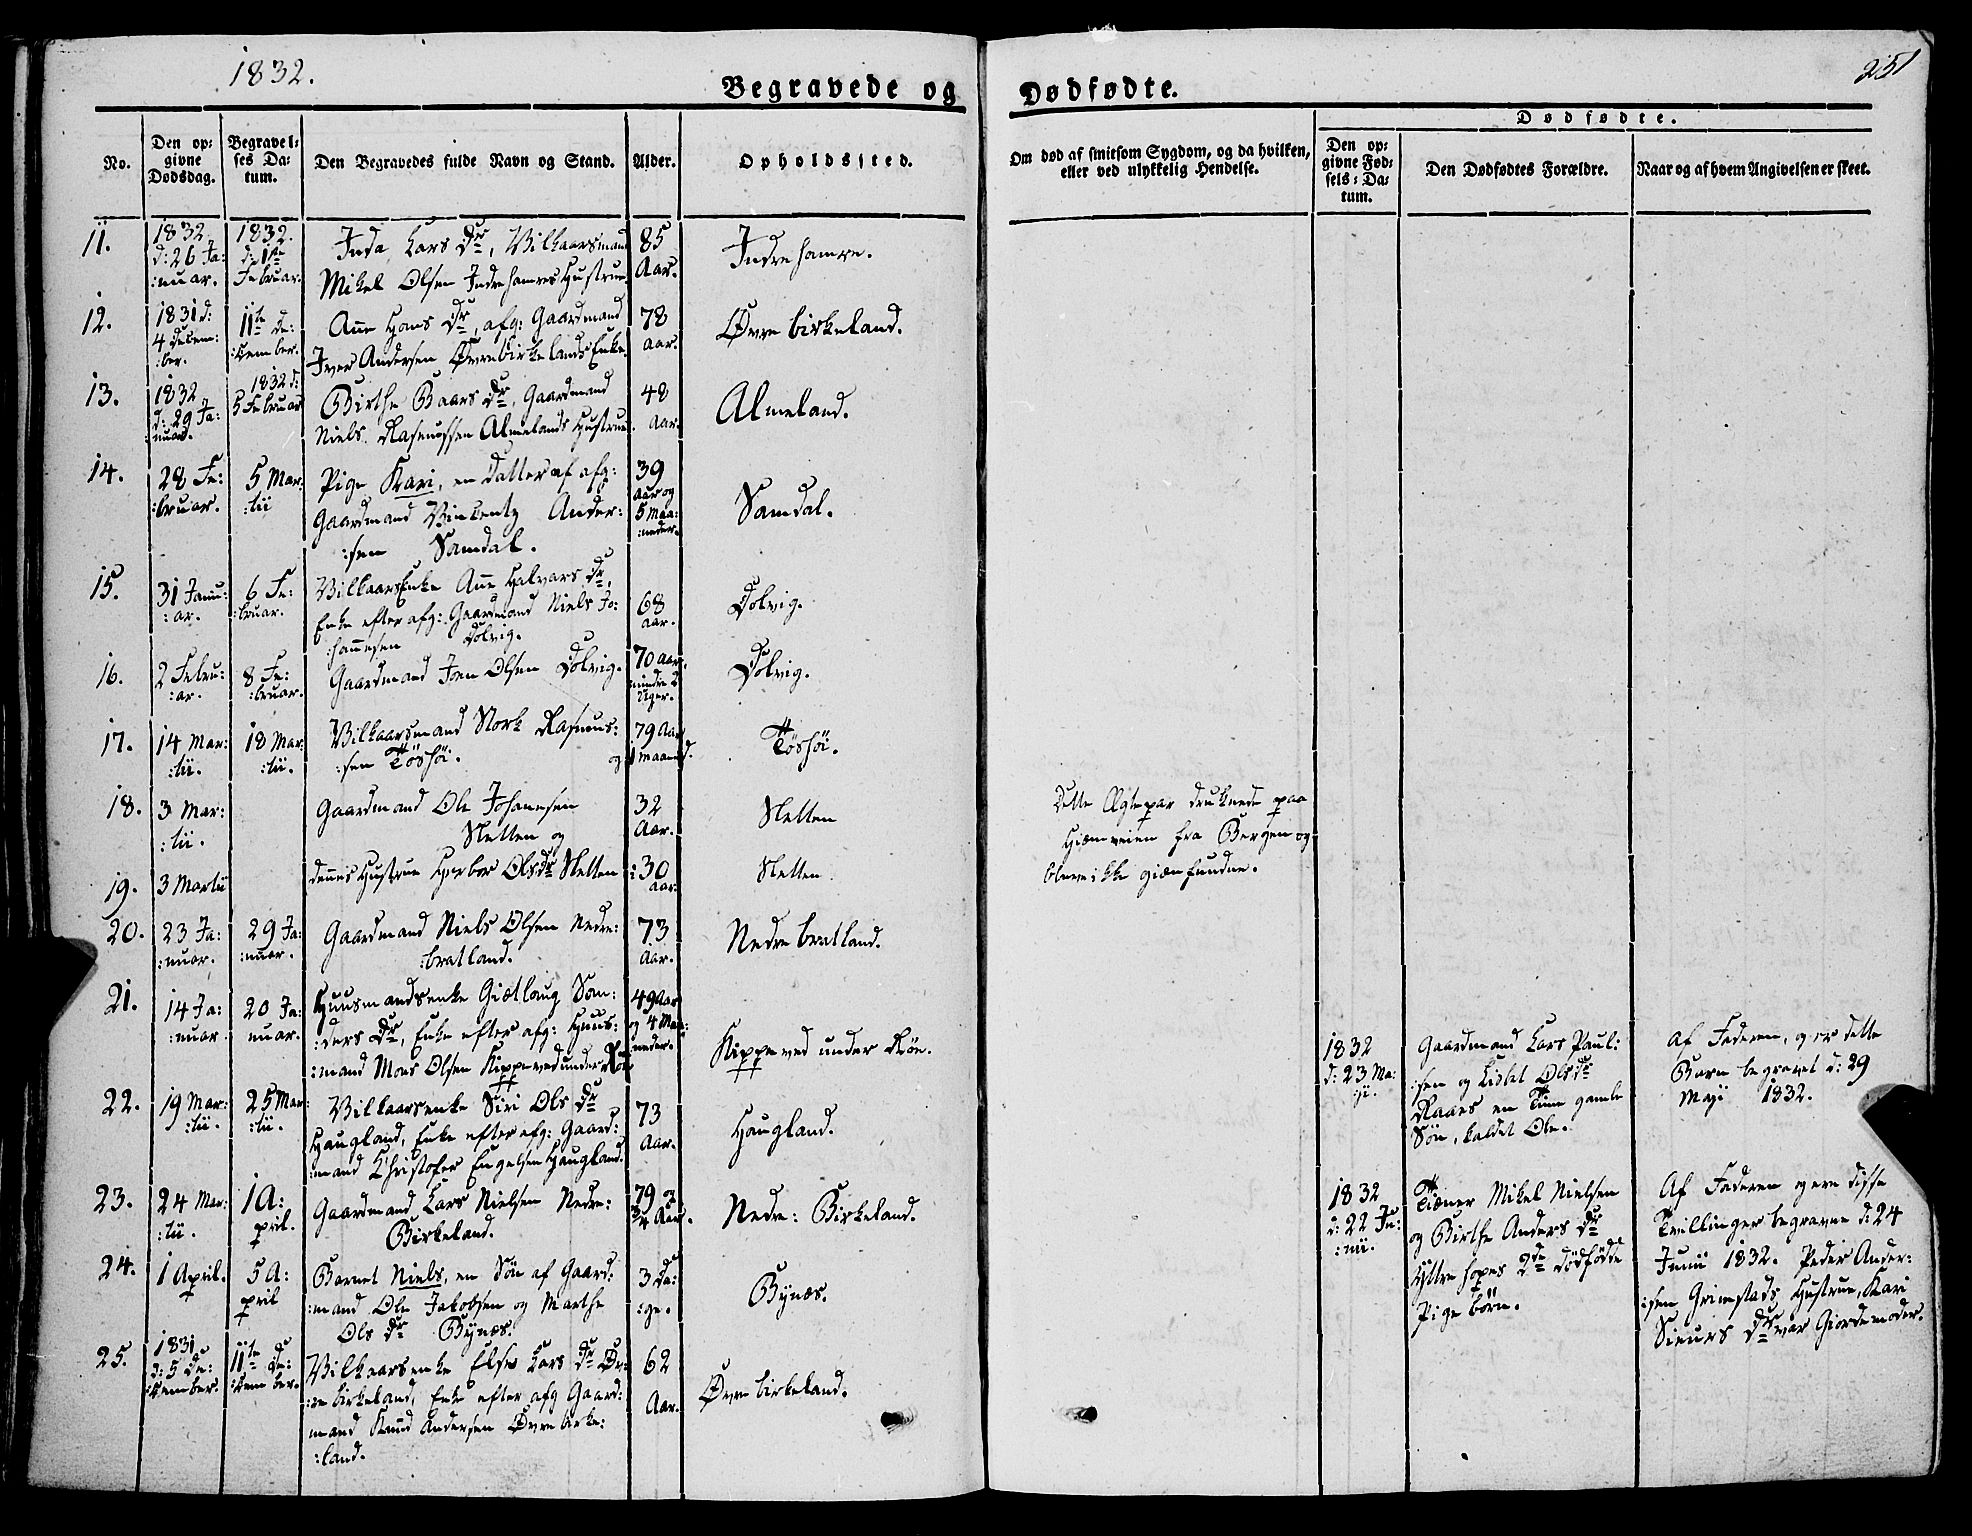 1832.
251
Begravede og Dødfødte.
No.
Den op=
givne
Dødsdag.
Begravel=
ses Da=
tum.
Den Begravedes fulde Navn og Stand.
Alder.
Opholdssted.
Om død af smitsom Sygdom, og da hvilken,
eller ved ulykkelig Hendelse.
Dødfødte.
Den op=
givne Fød=
sels=Da=
tum.
Den Dødfødtes Forældre.
Naar og af hvem Angivelsen er skeet.
11.
1832
d: 26 Ja:
:nuar.
1832.
d: 1ste
Februar.
Inda Lars Dr, Vilkaarsmand
Mikel Olsen Indrehamres Hustrue
85
Aar.
Indrehamre.
12.
1831 d:
4 Decem:
:ber.
11te De:
:cember.
Ane Hans Dr, afg: Gaardmand
Iver Andersen Øvrebirkelands Enke.
78
Aar.
Øvre birkeland.
13.
1832
d: 29 Ja:
nuar.
1832 d:
5 Februar
Birthe Baars Dr, Gaardmand
Niels Rasmussen Almelands Hustrue.
48
Aar.
Almeland.
14.
28 Fe:
:bruar.
5 Mar:
:tii
Pige Kari, en Datter af afg:
Gaardmand Vincentz Ander:
:sen Samdal.
39
Aar og
5 Maa:
:neder.
Samdal.
15.
31 Janu:
:ar.
6 Fe:
:bruar.
VilkaarsEnke Ane Halvars Dr,
Enke efter afg: Gaardmand Niels Jo:
:hanesen Dolvig.
68
Aar.
Dolvig.
16.
2 Febru:
:ar.
8 Fe:
:bruar.
Gaardmand Joen Olsen Dolvig.
70 Aar
mindre 2
Uger.
Dolvig.
17.
14 Mar:
:tii.
18 Mar:
:tii.
Vilkaarsmand Stork Rasmus:
:sen Tøshøi.
79 Aar
og 1 maaned.
Tøshøi.
18.
3 Mar:
:tii.
Gaardmand Ole Johanesen
Sletten og
32
Aar.
Sletten
Dette Ægtepar druknede paa
Hiemveien fra Bergen og
bleve ikke gienfundne.
19.
3 Martii
denes Hustrue Herbor Olsdr Sletten
:30
Aar.
Sletten
20.
23 Ja:
:nuar.
29 Ja:
:nuar.
Gaardmand Niels Olsen Nedre:
:bratland.
73
Aar.
Nedre bratland.
21.
14 Ja:
:nuar.
20 Ja:
nuar.
Huusmandsenke Giætlaug Son:
:ders Dr, Enke efter afg: Huus:
:mand Mons Olsen Kippeved under Røe
49 Aar
og 4 Maa:
neder.
Kippeved under Røe.
1832
d: 23 Ma:
:ji.
Gaardmand Lars Paul:
:sen og Lisbet Olsdr
Raaes en Time gamle
Søn, kaldet Ole.
Af Faderen, og er dette
Barn begravet d: 29
Maji 1832.
22.
19 Mar:
:tii.
25 Mar:
:tii.
Vilkaarsenke Siri Ols Dr
Haugland, Enke efter afg: Gaard:
:mand Christofer Engelsen Haugland.
73
Aar.
Haugland.
23.
24 Mar:
:tii.
1 A:
pril.
Gaardmand Lars Nielsen Nedre:
Birkeland.
79 og
3/4 Aar.
Nedre: Birkeland.
1832
d: 22 Ju:
:nii.
Tiener Mikel Nielsen
og Birthe Anders Dr
Yttrehopes 2de dødfødde
Pigebørn.
Af Faderen og ere disse
Tvillinger begravne d: 24
Junii 1832. Peder Ander:
:sen Grimstads Hustrue, Kari
Siurs Dr var Giordemoder.
24.
1 April.
5 A:
pril
Barnet Niels, en Søn af Gaard:
:mand Ole Jakobsen og Marthe
Ols Dr Bynæs.
3 Da:
:ge.
Bynæs.
25.
1831
d: 5 De:
:cember.
11te De:
:cember.
Vilkaarsenke Else Lars Dr Øv:
:re birkeland, Enke efter afg Gaard:
mand Knud Andersen Øvre birke:
:land.
62
Aar.
Øvre birkeland.